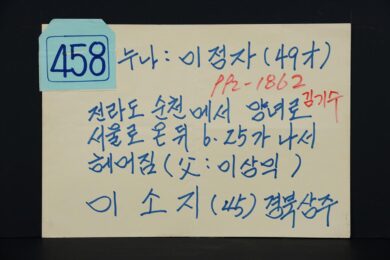 458
누나 : 이정자 (49才)
PR2-1862
전라도 순천에서 양녀로 김기수
서울로 온 뒤 6.25가 나서
헤어짐 (父 : 이상익)
이소지 (45) 경북상주